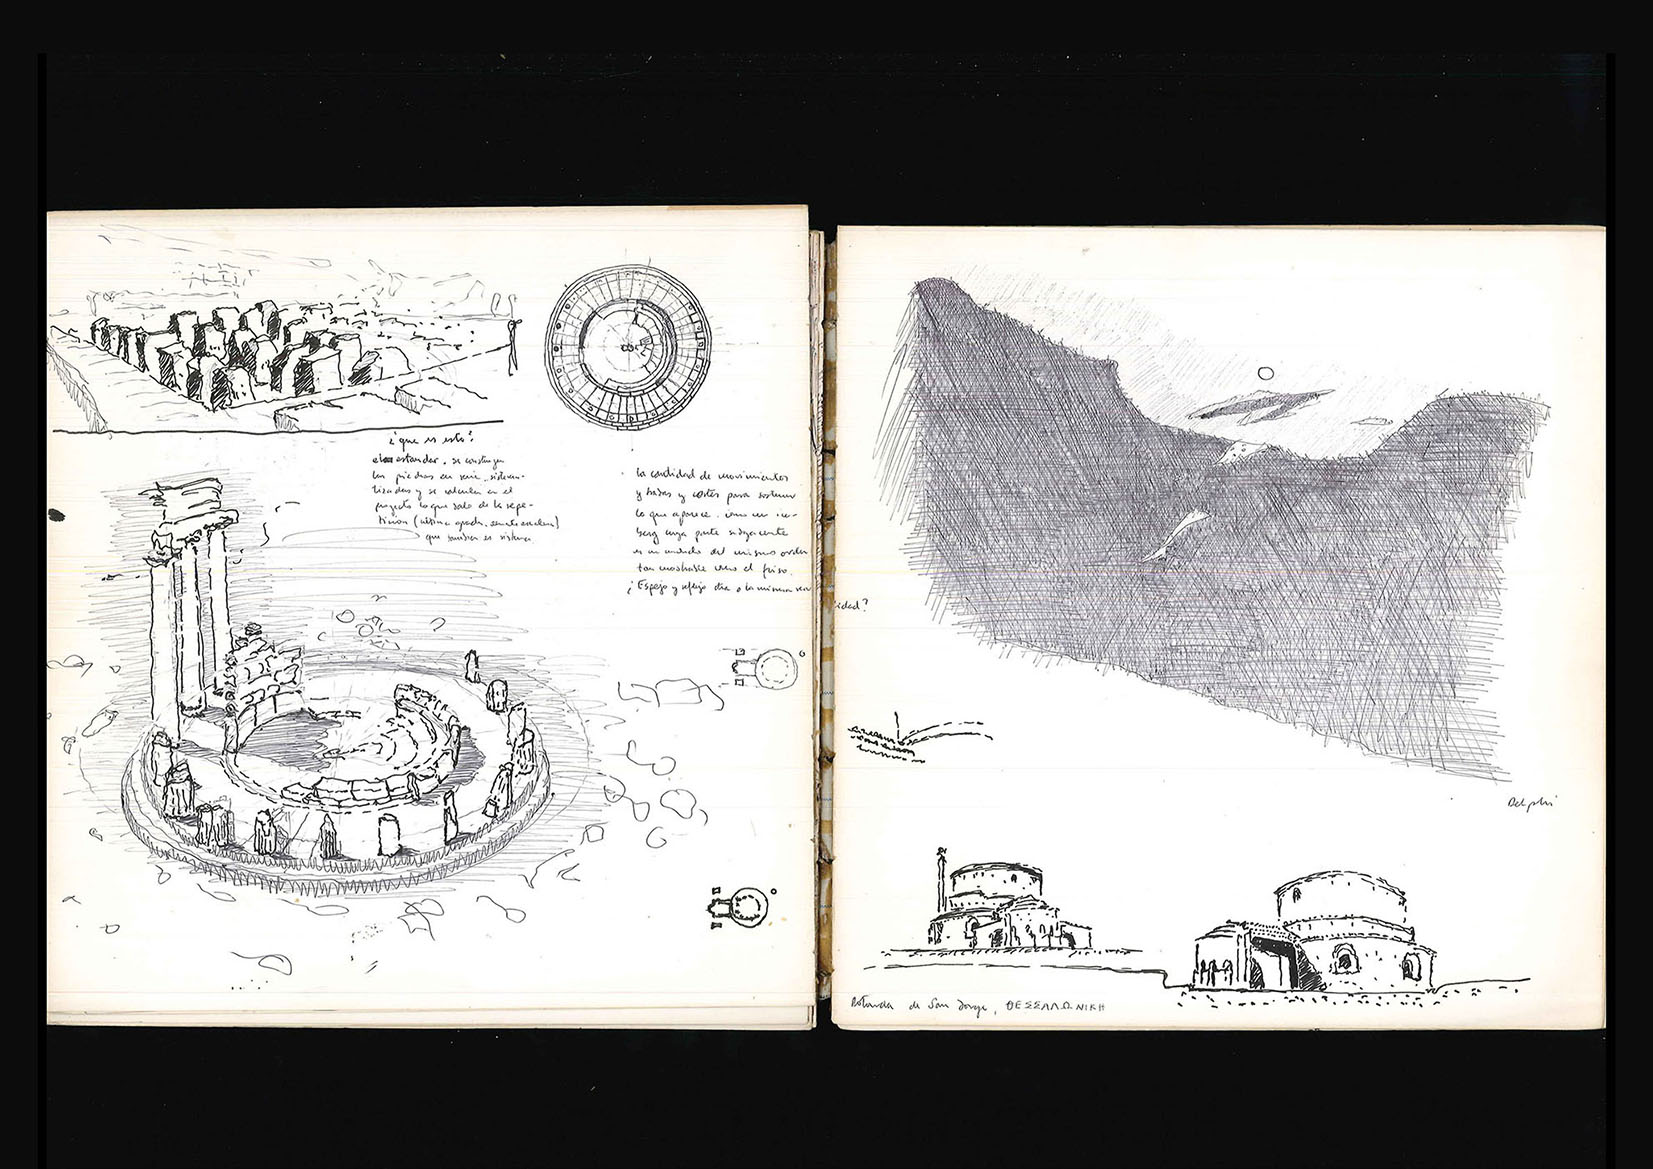 ¿que es esto?
estandar. se construyen
las piedras en serie, sistema-
tizadas y se calculan en el
proyecto lo que sale de la repe-
ticion (ultima grada,
que tambien es sistema
la cantidad de movimientos
y bases y cortes para sostener
lo que aparece. como un ice-
berg cuya parte subyacente
es un mundo del mismo orden
tan mostrable como el friso.
¿Espejo y reflejo dia o la misma
idad?
Delphi
Rotonda de San Jorge, ΘΕΣΣΑΛΩΝΙΚΗ